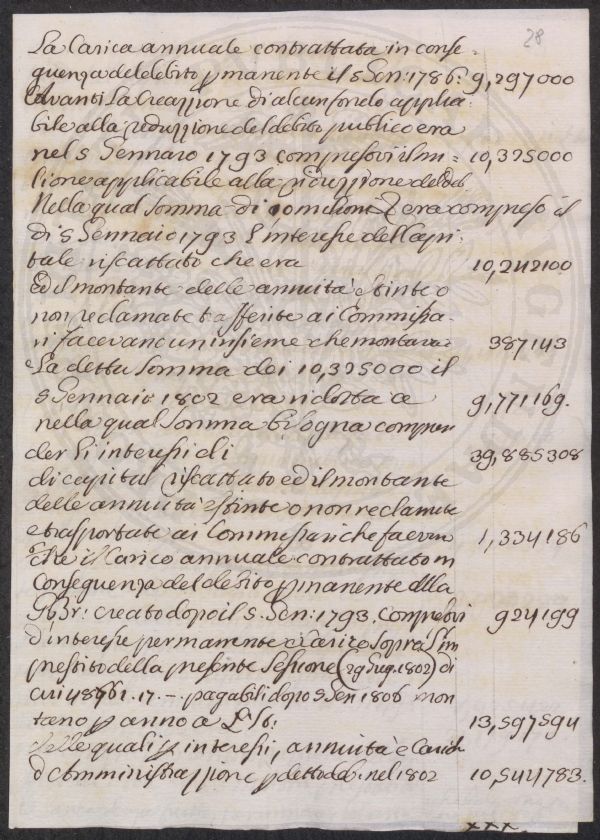 28
La Carica annuale contrattata in conse=
guenza del debito pmanente il 5 Gen: 1786: 9,297000
Avanti La Creazzione di alcun fondo applica=
bile alla reduzzione del debito publico era
nel 5 Gennaro 1793 compresovi il mi= 10,325000
lione applicabile alla riduzzione del deb.
Nella qual Somma di era compreso il
di 5 Gennaio 1793 l'interesse del Capi=
tale riscattato che era 10,242100
ed il montante delle annuità estinte o
non reclamate trasferite ai Commissa=
ri facevano un insieme che montava= 387143
La detta Somma dei 10,325000 il
5 Gennaio 1802 era ridotta a 9,771169.
nella qual Somma bisogna compren
der li interessi di 39,885308
di capital riscattato ed il montante
delle annuità estinte o non reclamate
e trasportate ai Commissari che facevan 1,334186
Che il Carico annuale contrattato in
Conseguenza del debito pmanente della
G. Br: creato dopo il 5. Gen: 1793. Compresovi 924199
d'interesse permanente e Carico sopra l'im
prestito della presente Sessione (29 Giug. 1802) di
pagabili dopo 5 Gen 1806 mon
tano p anno a L. St: 13,597594
delle quali p interessi, annuità e Carich
d'Amministrazzione p detto deb. nel 1802 10,544783.
xxx